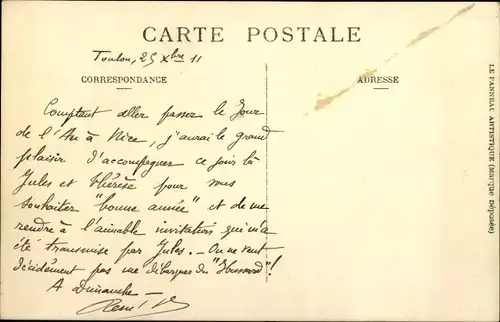 CARTE POSTALE
Toulon, 25 Xbre 11
CORRESPONDANCE
ADRESSE
Comptant aller passer le Jour
de l'An à Nice, j'aurai le grand
plaisir d'accompagner ce jour là
Jules et Thérèse pour vous
souhaiter "bonne année" et de me
rendre à l'aimable invitation qui m'a
été transmise par Jules. - On ne veut
décidément pas me débarquer du "Hussard"!
A Dimanche -
René
LE PANNEAU ARTISTIQUE (Marque Déposée)